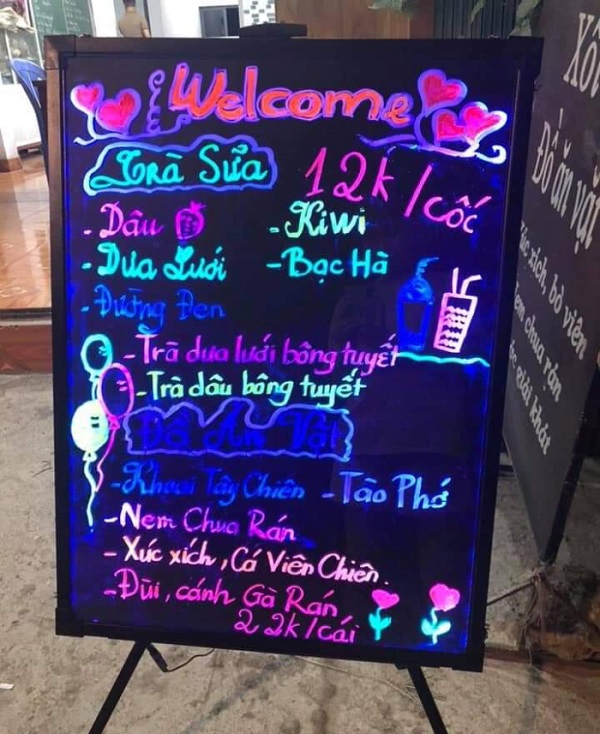 Welcome
Trà Sữa 12k/cốc
- Dâu - Kiwi
- Dưa Lưới - Bạc Hà
- Đường Đen
- Trà dưa lưới bông tuyết
- Trà dâu bông tuyết
Đồ Ăn Vặt
- Khoai Tây Chiên - Tào Phớ
- Nem Chua Rán
- Xúc xích, Cá Viên Chiên.
- Đùi, cánh Gà Rán
22k/cái
Xôi
Đồ ăn vặt
xích, bò viên
nem chua rán
giải khát